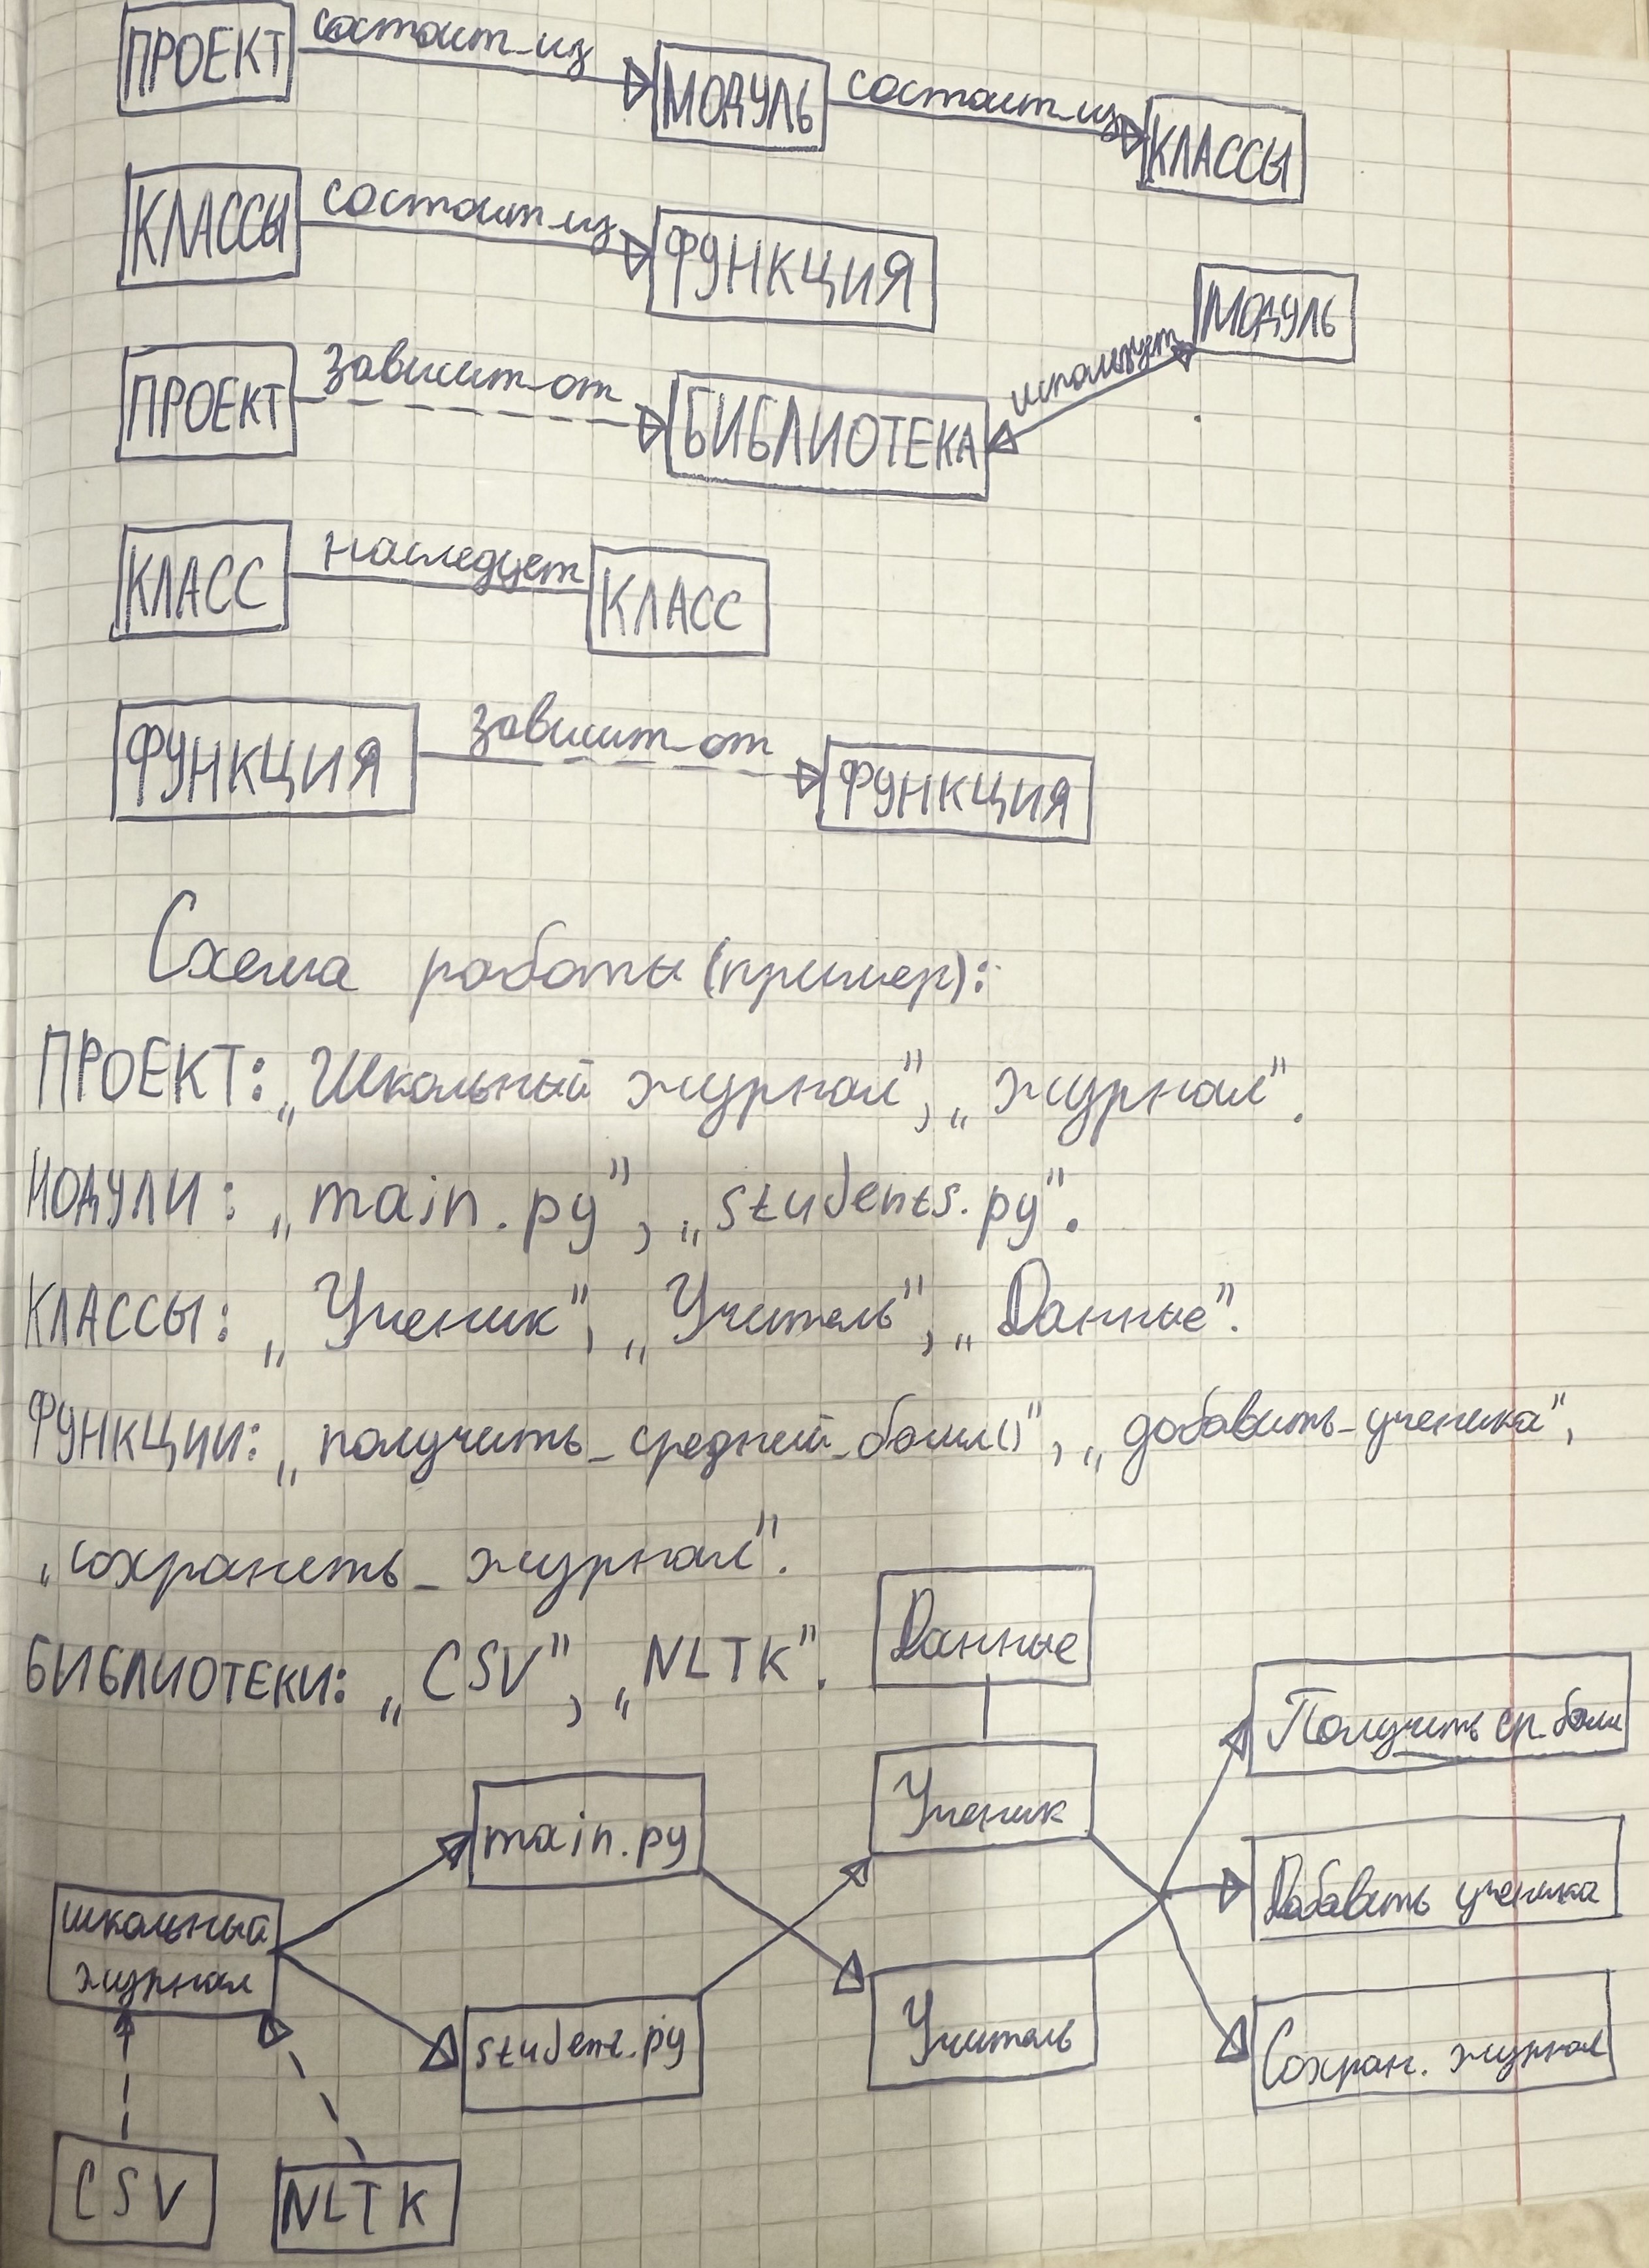 ПРОЕКТ состоит_из МОДУЛЬ состоит_из КЛАССЫ
КЛАССЫ состоит_из ФУНКЦИЯ
МОДУЛЬ
ПРОЕКТ зависит_от БИБЛИОТЕКА использует
КЛАСС наследует КЛАСС
ФУНКЦИЯ зависит_от ФУНКЦИЯ
Схема работы (пример):
ПРОЕКТ: „Школьный журнал", „журнал".
МОДУЛИ: „main.py", „students.py".
КЛАССЫ: „Ученик", „Учитель", „Данные".
ФУНКЦИИ: „получить_средний_балл()", „добавить_ученика",
„сохранить_журнал".
БИБЛИОТЕКИ: „CSV", „NLTK".
Данные
Получить ср. балл
main.py Ученик
школьный
журнал
Добавить ученика
student.py Учитель Сохран. журнал
CSV NLTK